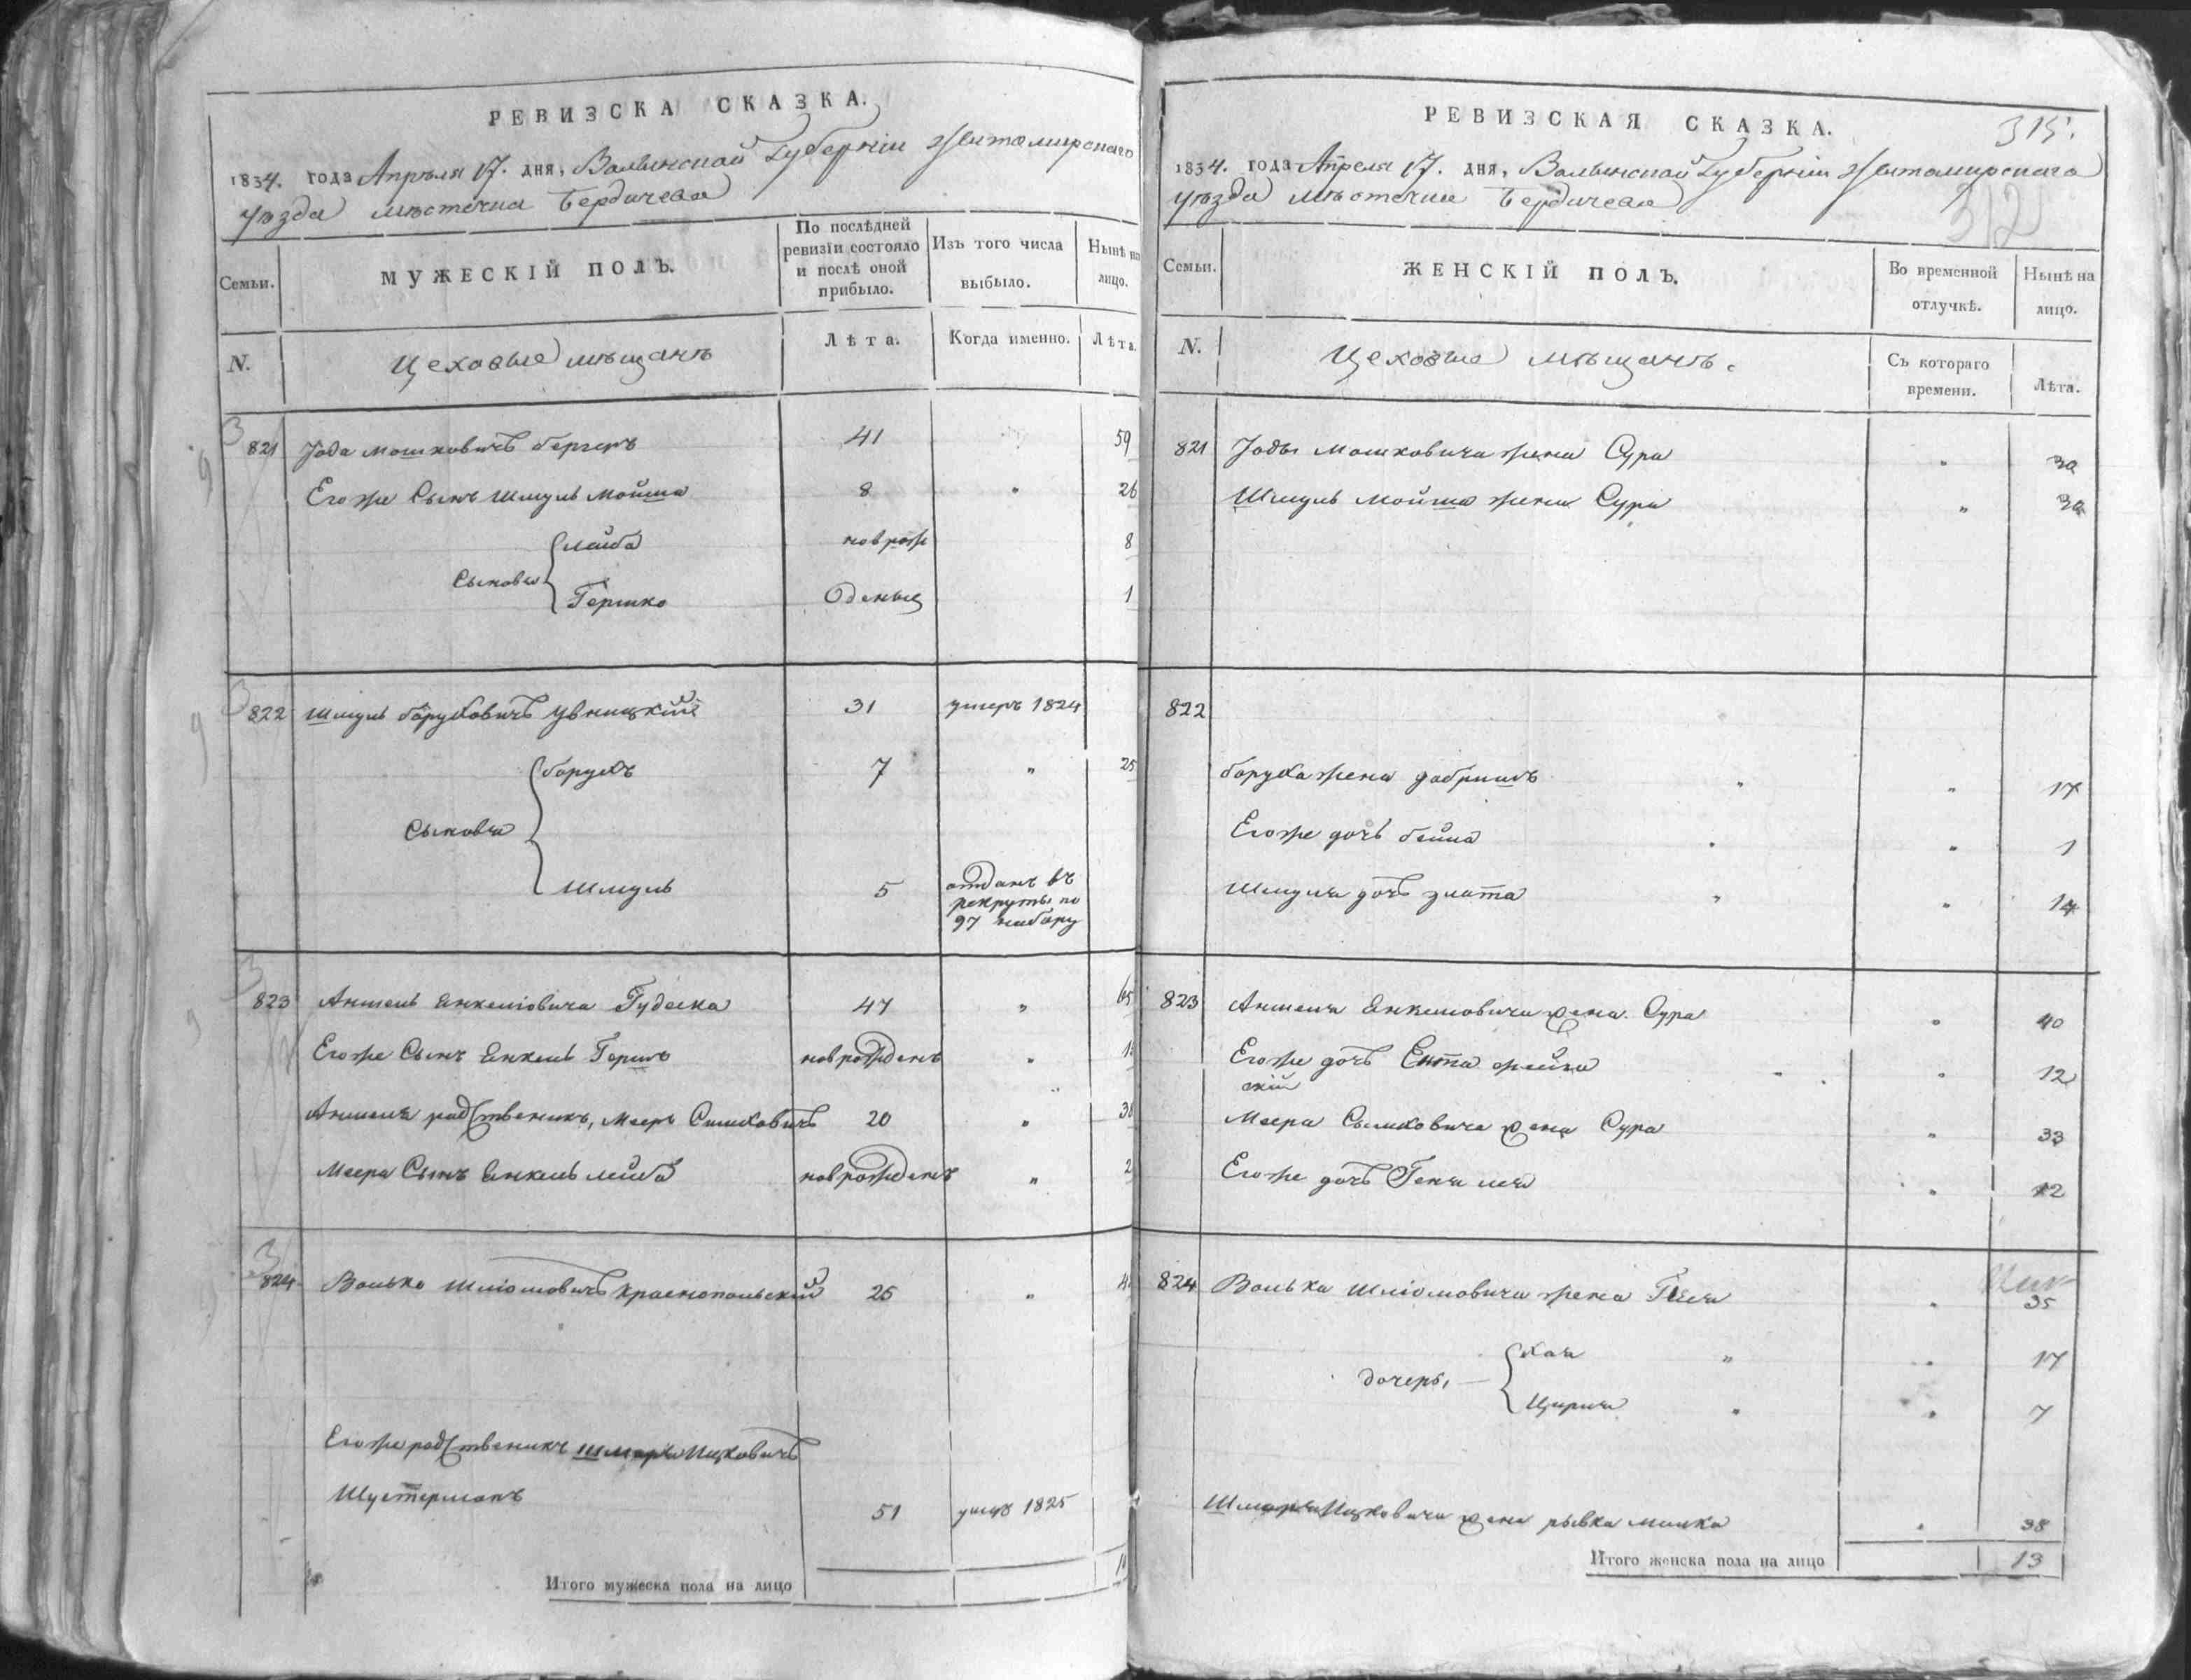 РЕВИЗСКА СКАЗКА.
1834. года Апрѣля 17. дня, Волынской Губерніи Житомирскаго
уѣзда мѣстечка Бердичева
Семьи.
МУЖЕСКІЙ ПОЛЪ.
По послѣдней ревизіи состояло и послѣ оной прибыло.
Изъ того числа выбыло.
Нынѣ на лицо.
N.
Цеховые мѣщанѣ
Лѣта.
Когда именно.
Лѣта.
821 Іода Мошковичъ Бергеръ 41 59
Его же Сынъ Шмуль Мойша 8 " 26
Сыновья { Лейба новрож 8
Гершко Оденыц 1
822 Шмуль Боруховичъ Увницкій 31 умеръ 1824
Сыновья { Борухъ 7 " 25
Шмуль 5 отданъ въ
рекруты по
97 набору
823 Аншель Енкеліовича Гудеска 47 " 65
Его же Сынъ Енкель Гершъ новрожденъ "
Аншеля родственикъ, Мееръ Симховичъ 20 " 38
Меера Сынъ Енкель Лейба новрожденъ " 2
824 Волько Шліомовичъ Краснопольскій 25 "
Его же родственикъ Шмарья Ицковичъ
Шустерманъ 51 умеръ 1825
Итого мужеска пола на лицо
РЕВИЗСКАЯ СКАЗКА.
315.
1834. года Апреля 17. дня, Волынской Губерніи Житомирскаго
уѣзда мѣстечка Бердичева
312
Семьи.
ЖЕНСКІЙ ПОЛЪ.
Во временной отлучкѣ.
Нынѣ на лицо.
N.
Цеховые мѣщанѣ.
Съ котораго времени.
Лѣта.
821 Іоды Мошковича жена Сура " 30
Шмуль Мойша жена Сура " 30
822
Боруха жена Добришъ " " 17
Его же дочь Бейла " " 1
Шмуля дочь Злата " " 14
823 Аншеля Енкеліовича жена Сура " 40
Его же дочь Ента " " 12
Меера Сымховича жена Сура " 33
Его же дочь Геня Лея " 12
824 Волька Шліомовича жена " 35
дочеры — { Хая " " 17
Цирля " " 7
Шмарья Ицковича жена Рывка Малка " 38
Итого женска пола на лицо 13